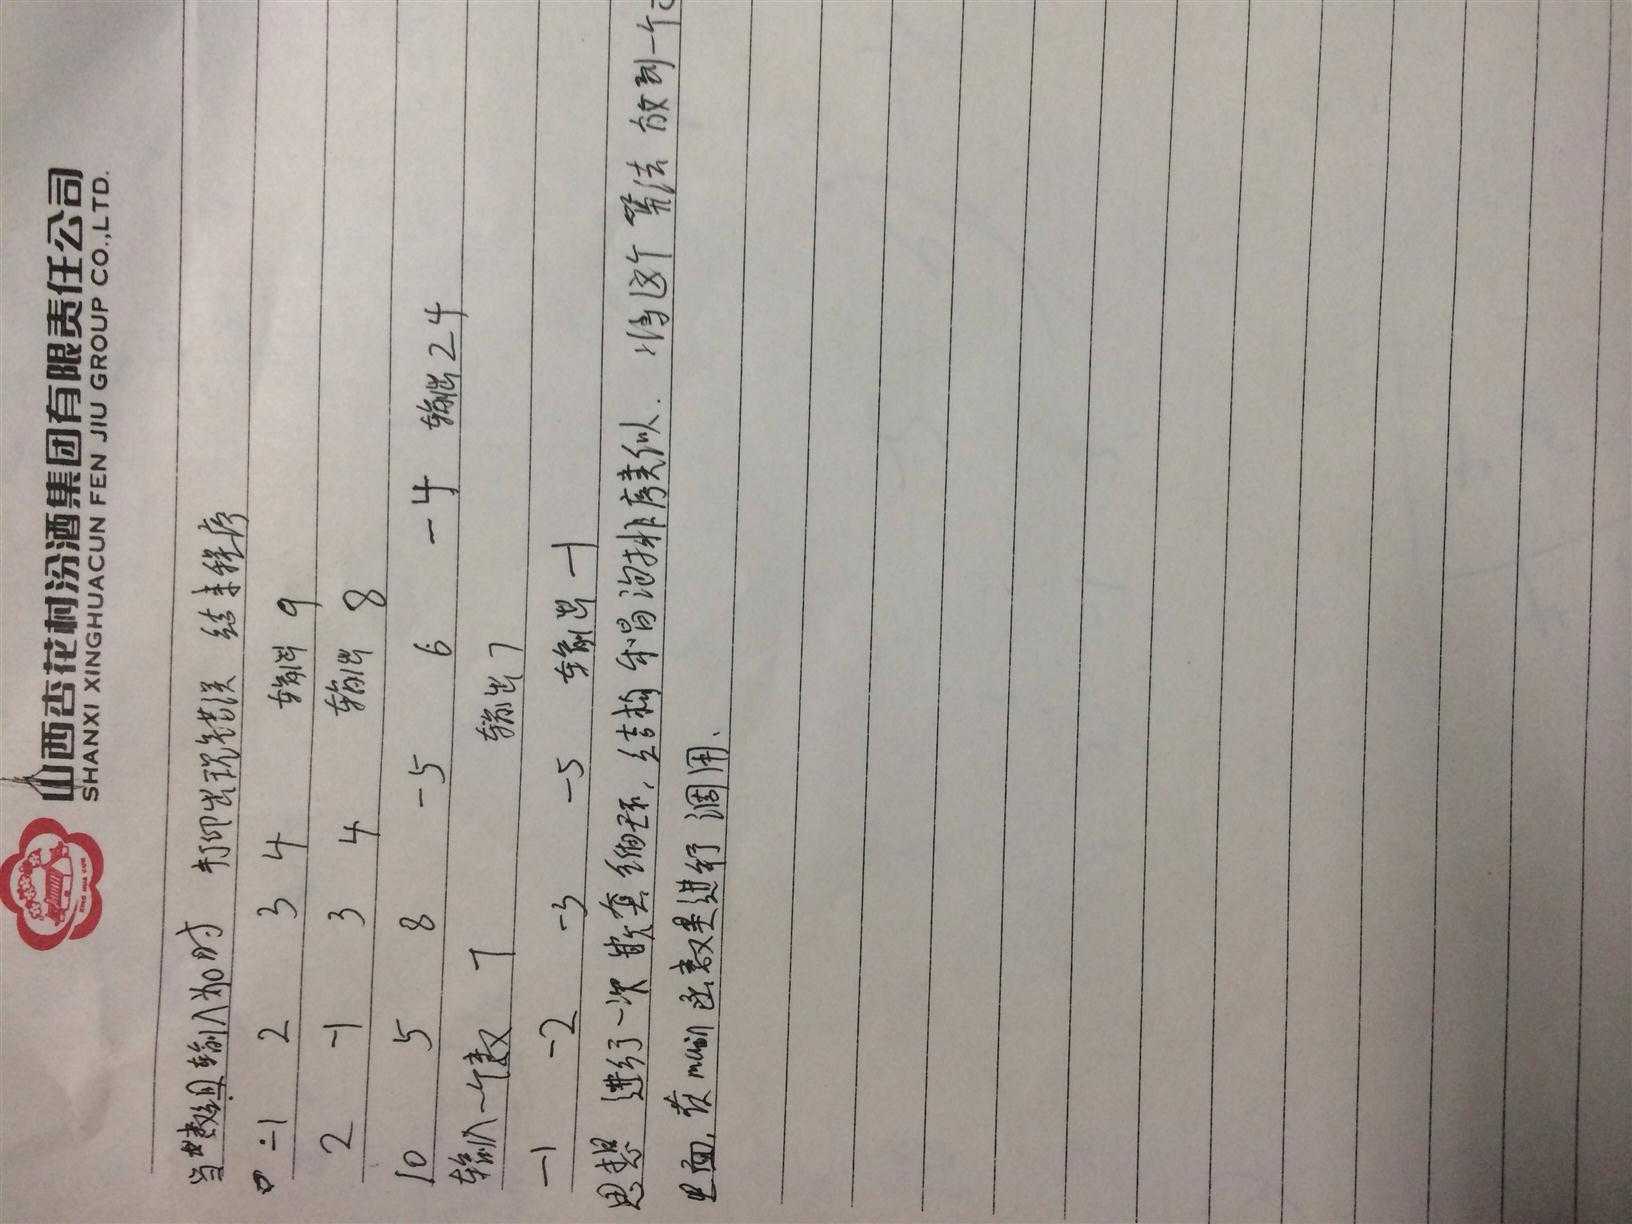 山西杏花村汾酒集团有限责任公司
SHANXI XINGHUACUN FEN JIU GROUP CO.,LTD.
当数组输入为0时 打印出现错误 结束程序
-1 2 3 4 输出 9
2 -1 3 4 输出 8
10 5 8 -5 6 -4 输出24
输入一个数 7 输出7
-1 -2 -3 -5 输出 -1
思想 进行了一次嵌套循环，结构和冒泡排序类似. 将这个算法放到一个
里面，在main函数里进行调用.